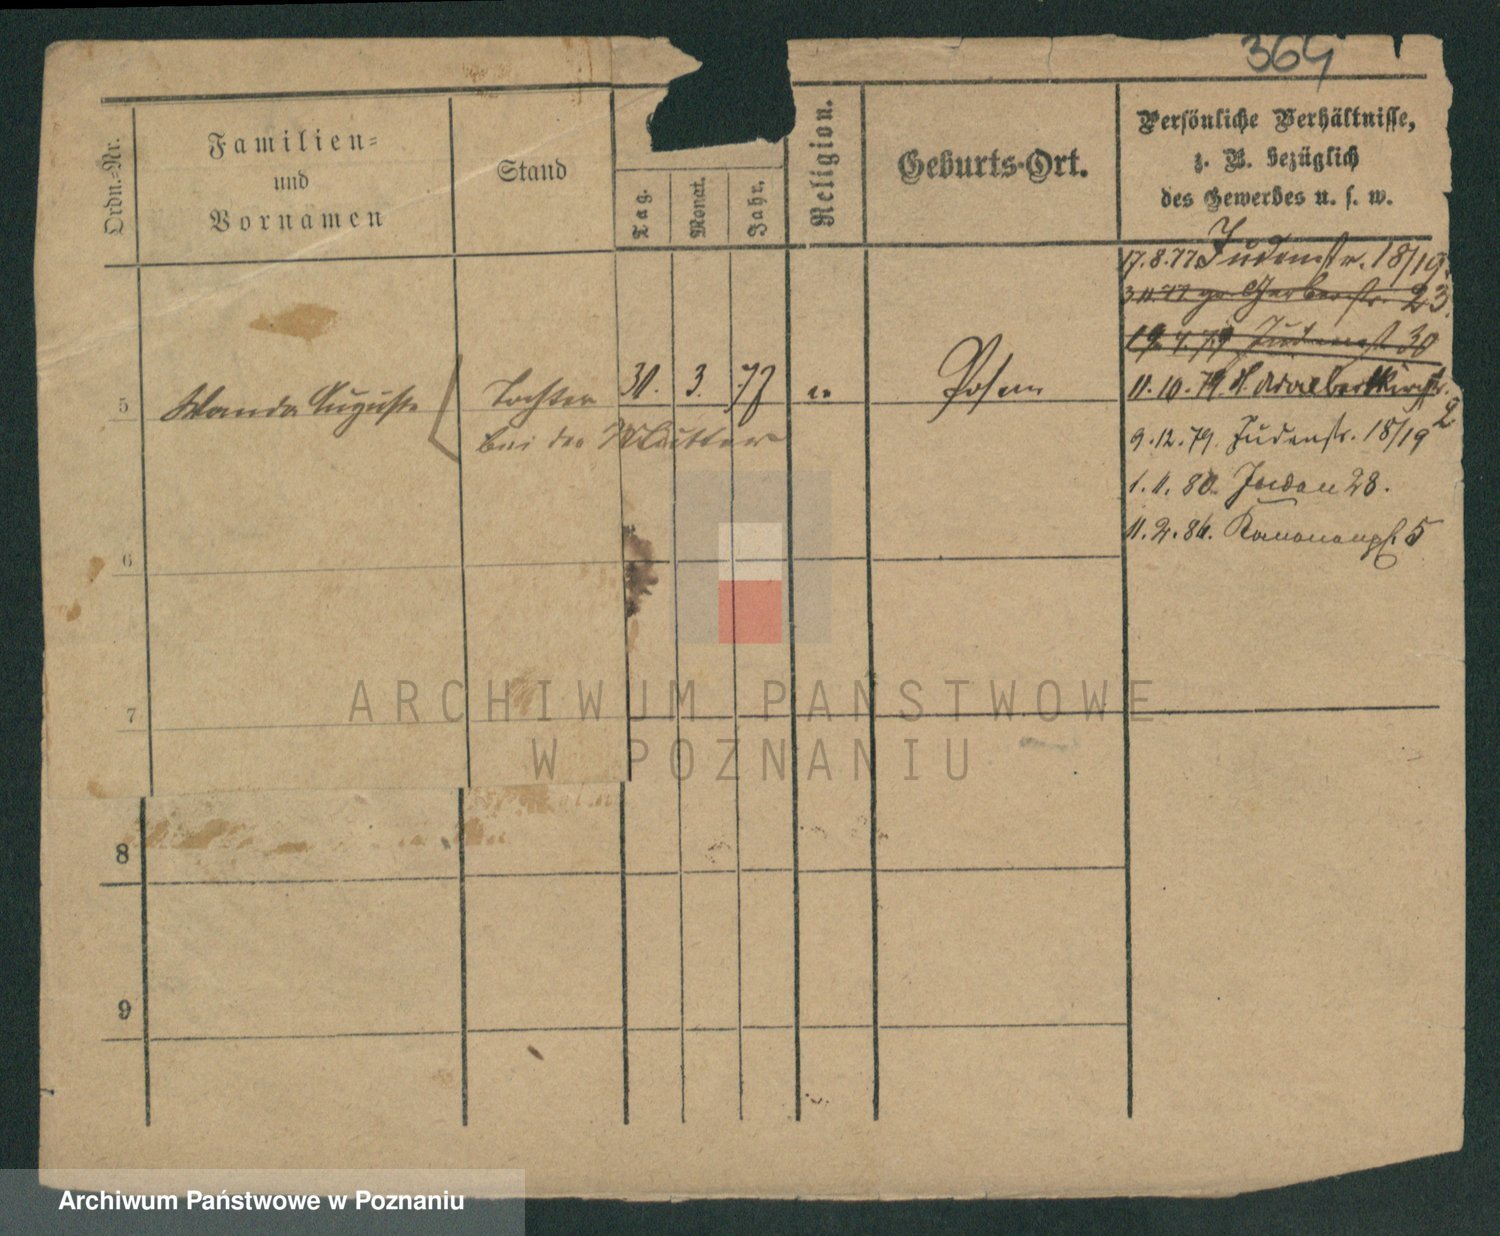 364
Ordn.=Nr.
Familien=
und
Vornamen
Stand
Tag.
Monat.
Jahr.
Religion.
Geburts-Ort.
Persönliche Verhältnisse,
z. B. bezüglich
des Gewerbes u. s. w.
17.8.77 Judenstr. 18/19.
gr. Gerberstr. 23.
19.4.79 Judenst 30
5
Wanda Auguste
Tochter
bei der Mutter
30. 3. 77
"
Posen
11.10.79. St. Adalbertkirchstr. 2
9.12.79. Judenstr. 18/19
1.11.80. Juden 28.
11.2.86. Kanonenpl. 5
6
7
8
9
ARCHIWUM PAŃSTWOWE
W POZNANIU
Archiwum Państwowe w Poznaniu